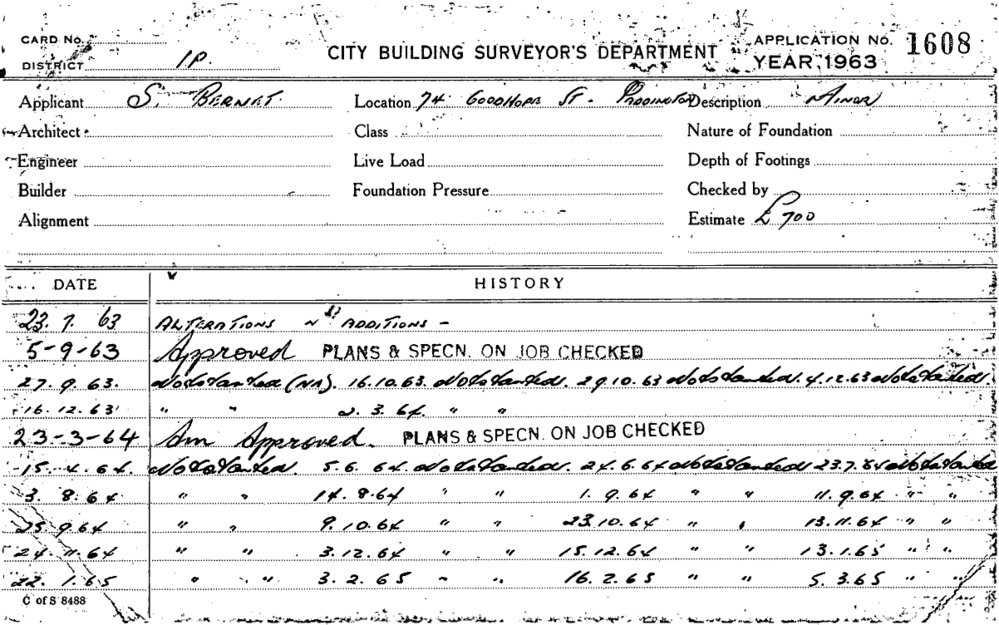 CARD No. CITY BUILDING SURVEYOR'S DEPARTMENT APPLICATION No. 1608
DISTRICT 1P. YEAR 1963
Applicant S. BERNET. Location 74 GOODHOPE ST. PADDINGTON Description MINOR
Architect Class Nature of Foundation
Engineer Live Load Depth of Footings
Builder Foundation Pressure Checked by
Alignment Estimate £700
DATE HISTORY
23. 7. 63 ALTERATIONS & ADDITIONS -
5-9-63 Approved PLANS & SPECN. ON JOB CHECKED
27. 9. 63. Not Started (NA). 16.10.63. Not Started. 29.10.63 Not Started. 4.12.63 Not Started
16.12.63 " " 2. 3. 64. " "
23-3-64 Am Approved. PLANS & SPECN. ON JOB CHECKED
15. 4. 64. Not Started. 5. 6. 64. Not Started. 24. 6. 64 Not Started 23.7.64 Not Started
3. 8. 64 " " 14. 8. 64 " " 1. 9. 64 " " 11. 9. 64 " "
25. 9. 64 " " 9. 10. 64 " " 23.10.64 " " 13.11.64 " "
24. 11. 64 " " 3. 12. 64 " " 15. 12. 64 " " 13.1.65 " "
22. 1. 65 " " 3. 2. 65 " " 16. 2. 65 " " 5. 3. 65 " "
C of S 8488